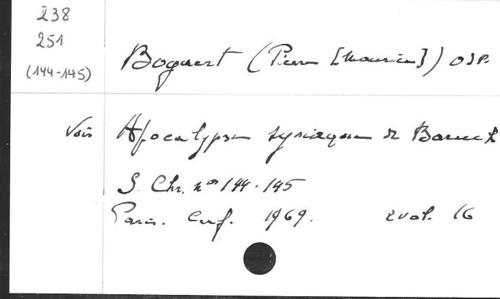 238
251
(144-145)
Bogaert (Pierre [Maurice]) OSB.
Voir Apocalypse syriaque de Baruch
S. Chr. nos 144-145
Paris. Cerf. 1969. 2 vol. 16